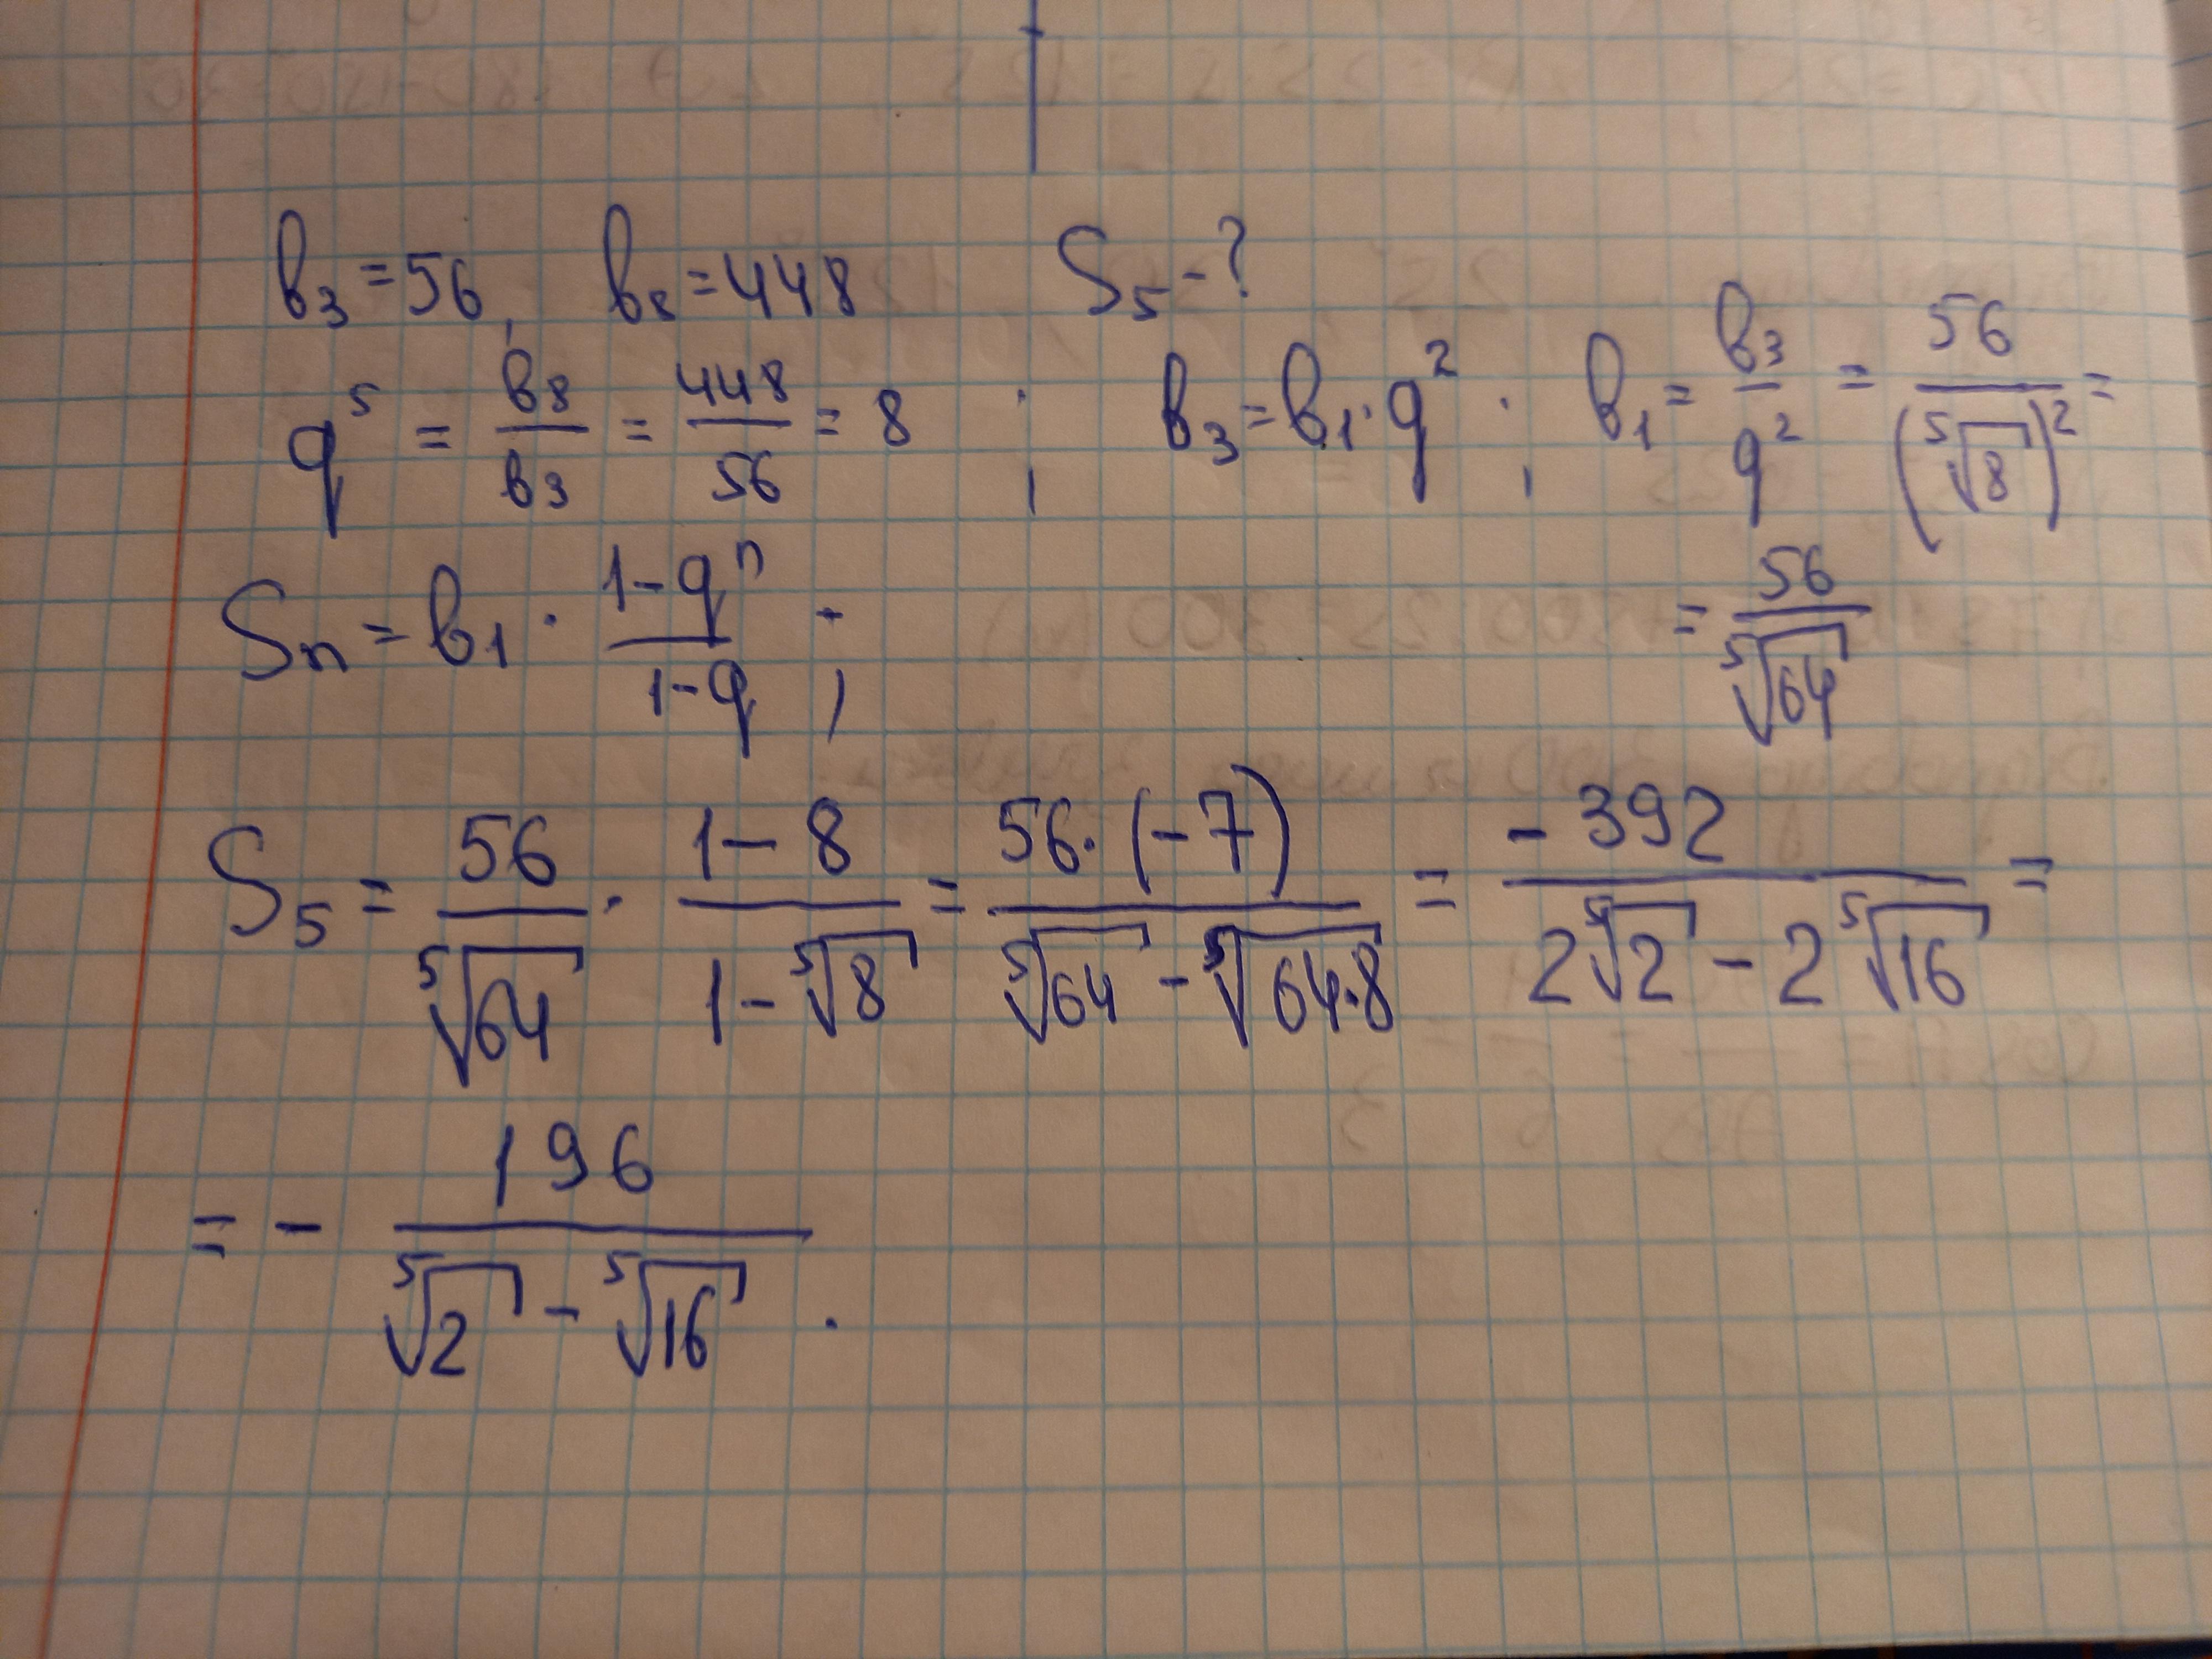 b₃ = 56, b₈ = 448 S₅ - ?
q⁵ = b₈/b₃ = 448/56 = 8 ; b₃ = b₁ · q² ; b₁ = b₃/q² = 56/(⁵√8)² =
= 56/⁵√64
Sₙ = b₁ · (1 - qⁿ)/(1 - q) ;
S₅ = 56/⁵√64 · (1 - 8)/(1 - ⁵√8) = 56 · (-7)/(⁵√64 - ⁵√64·8) = -392/(2⁵√2 - 2⁵√16) =
= - 196/(⁵√2 - ⁵√16) .